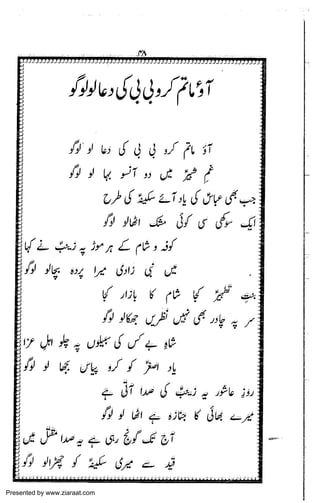 ۳۸
آؤ ماتم کرو بی بی کی دعا لو لوگو
آؤ ماتم کرو بی بی کی دعا لو لوگو
غمِ شبیرؑ میں دو آنسو بہا لو لوگو
جب بھی عباسؑ کی یاد آئے سکینہؑ کی طرح
ایک سوکھی سی کوئی مشک اٹھا لو لوگو
کوفہ و شام کے ہر موڑ پہ زینبؑ نے کہا
میں نبی زادی میرا پردہ بچا لو لوگو
بنتِ تطہیرؑ کجا شام کا بازار کجا
سر پہ چادر بھی نہیں نظریں جھکا لو لوگو
شاہِ بے کس کی سبیلوں پہ چلو اہلِ عزا
یاد اصغرؑ کو کرو پیاس بجھا لو لوگو
روزِ عاشور یہ زینبؑ کی صدا آتی ہے
میرے بھائی کا جنازہ ہے اٹھا لو لوگو
آج تک گونج رہی ہے یہ صدا مقتل میں
قید سے میری سکینہؑ کو چھڑا لو لوگو
Presented by www.ziaraat.com